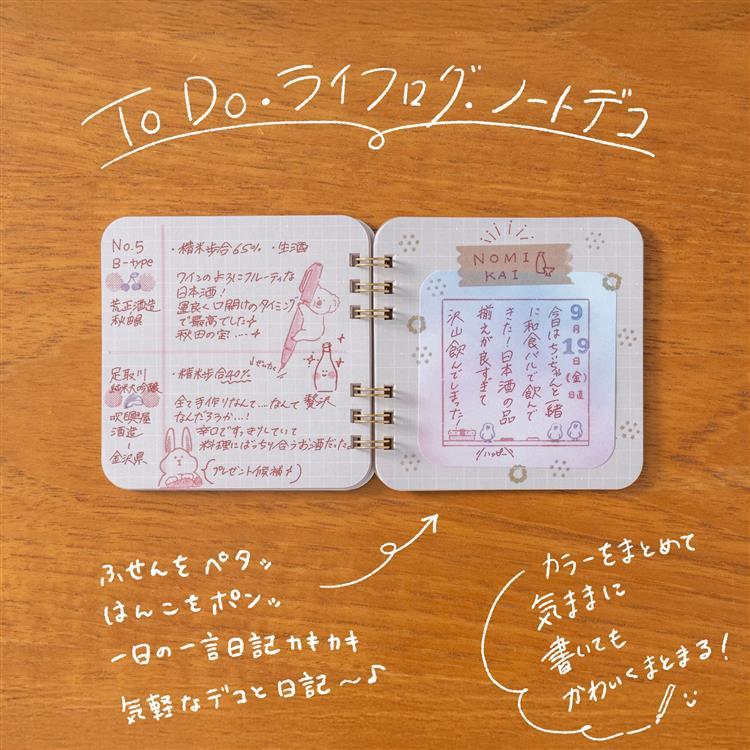 To Do・ライフログ・ノートデコ
No.5
B-type
荒正酒造
秋田県
・精米歩合65% ・生酒
ワインのようにフルーティな
日本酒!
運良く口開けのタイミング
で最高でした
秋田の宝・・・・
ぜいたく
足取川
純米大吟醸
吹興屋
酒造
金沢県
・精米歩合40%
全て手作りなんて…なんて贅沢
なんだろうか…!
辛口ですっきりしていて
料理にばっちり合うお酒だったよ
(プレゼント候補
NOMI
KAI
9月19日(金)
日直
今日はちぃちゃんと一緒
に和食バルで飲んで
きた!日本酒の品
揃えが良すぎて
沢山飲んでしまった!
ふせんをペタッ
はんこをポンッ
一日の一言日記カキカキ
気軽なデコと日記〜♪
カラーをまとめて
気ままに
書いても
かわいくまとまる!